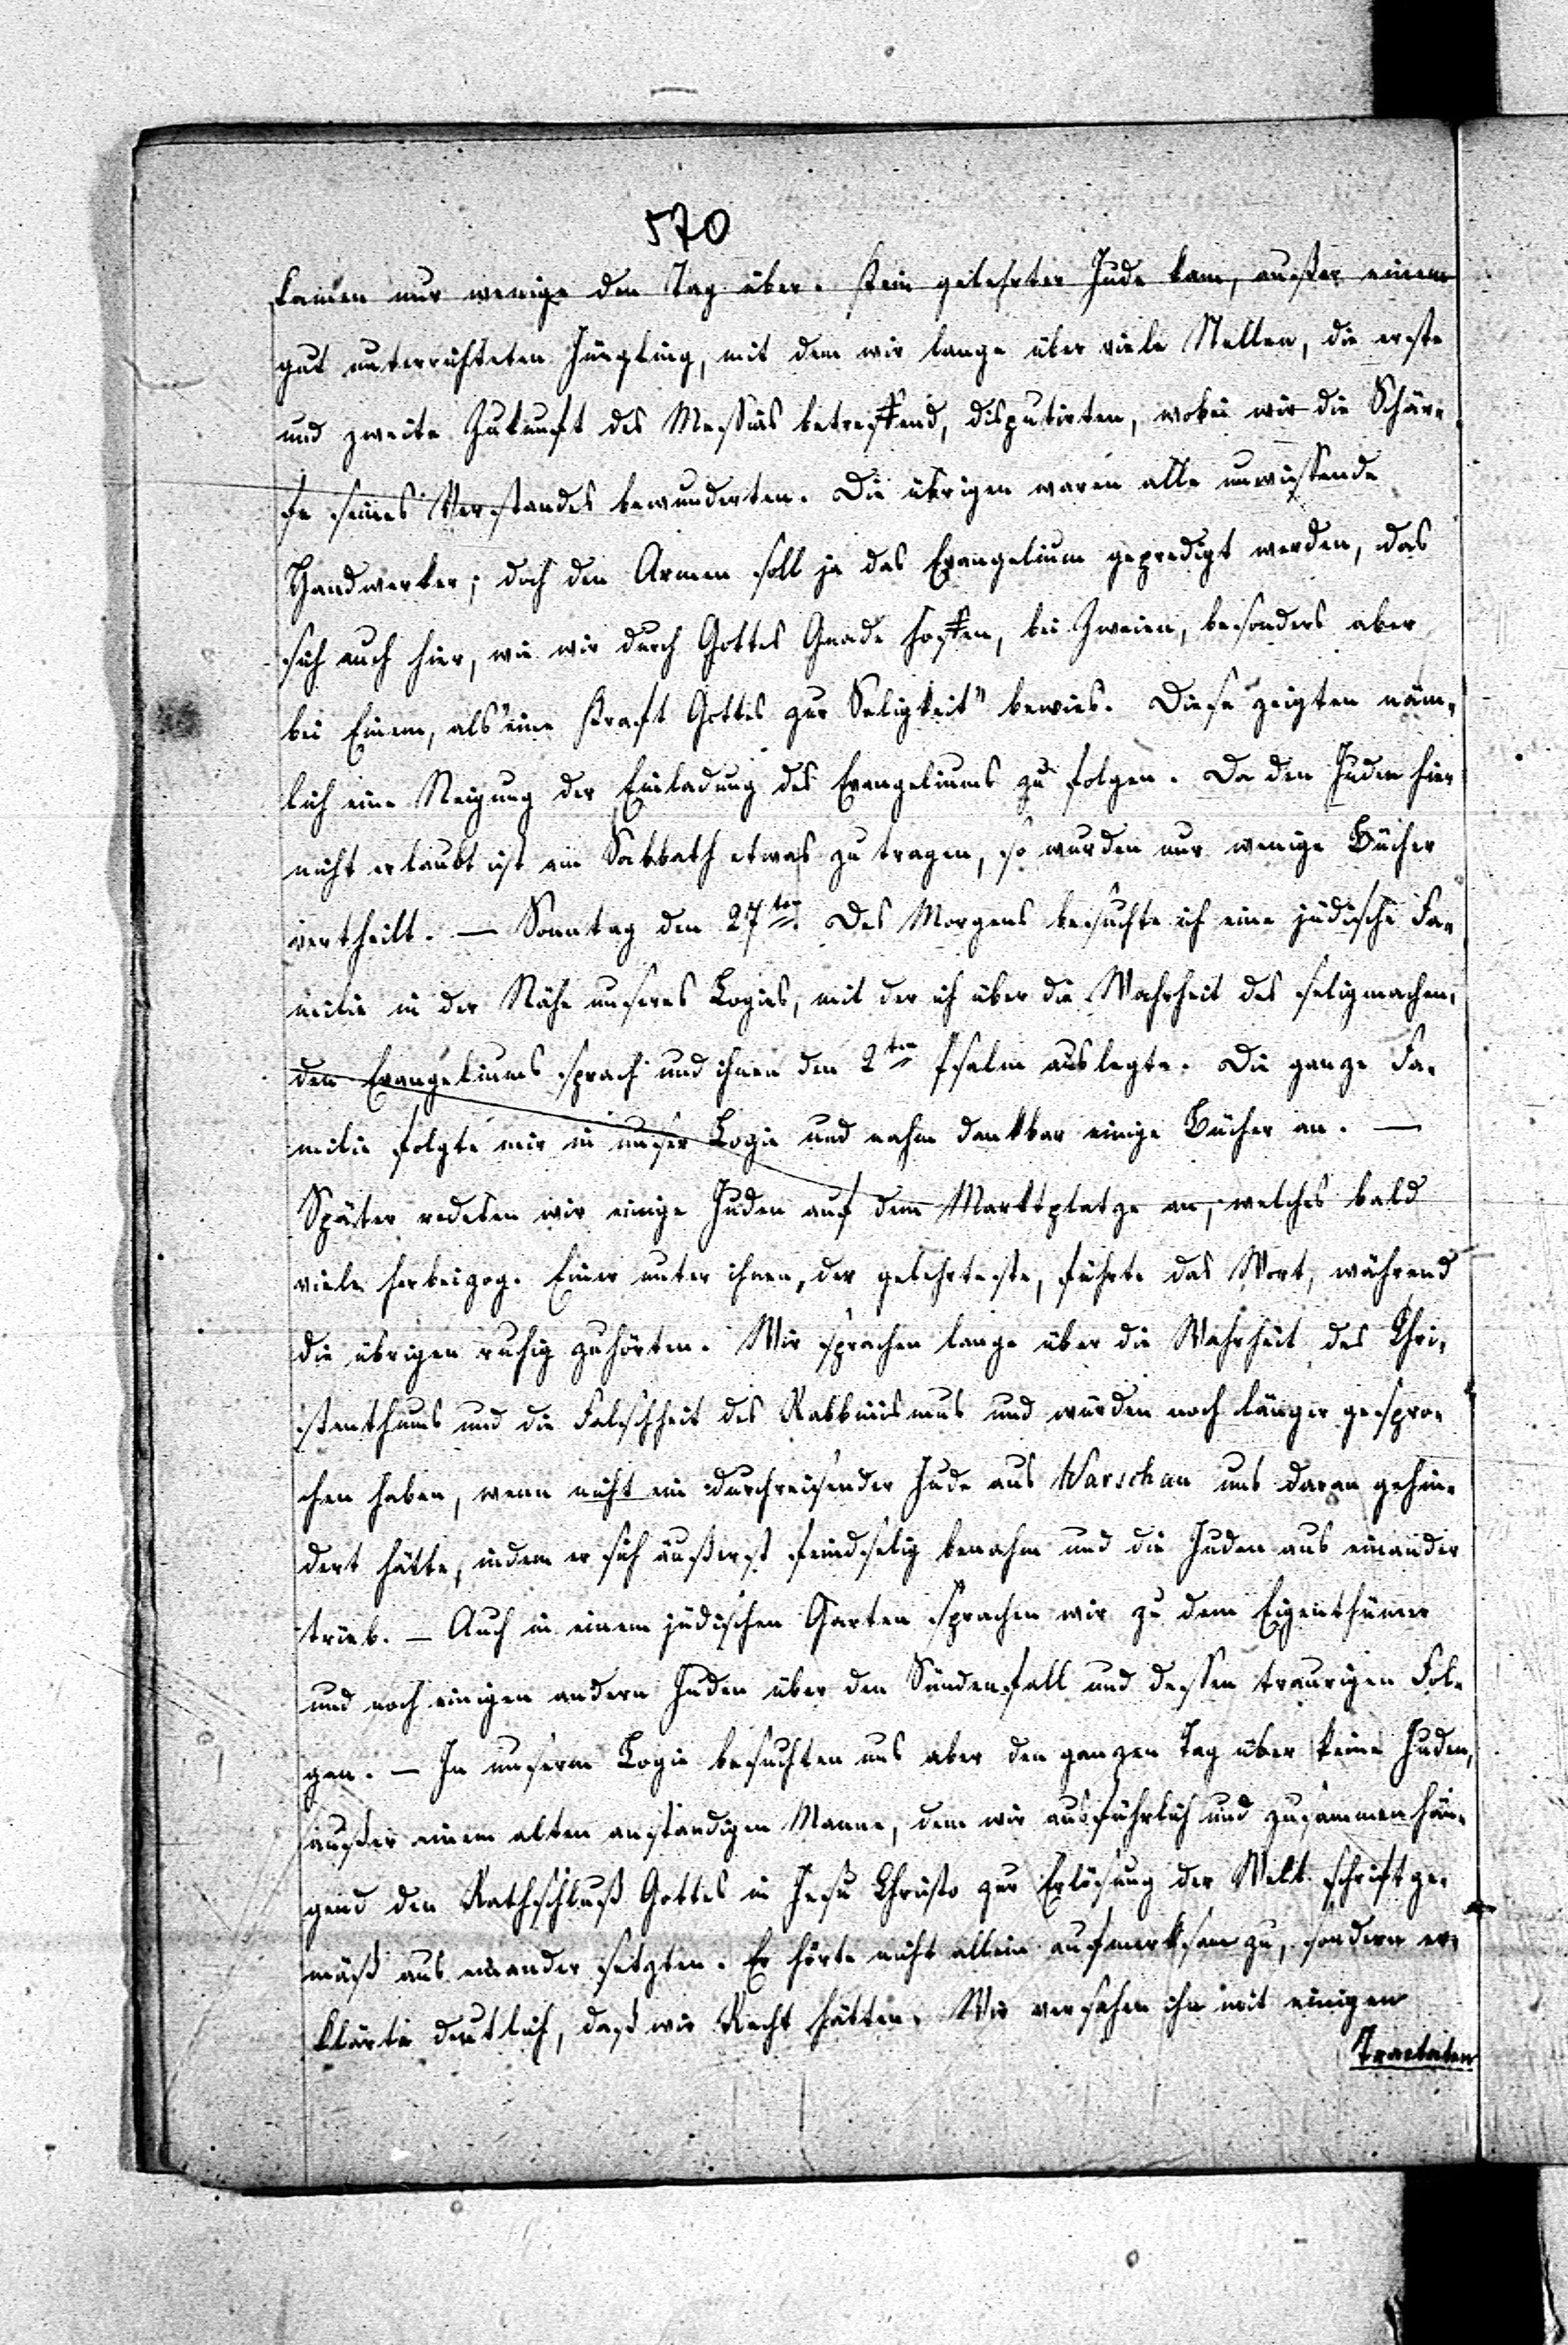 570
kamen nur wenige den Tag über. Kein gelehrter Jude kam, außer einem
gut unterrichteten Jüngling, mit dem wir lange über viele Stellen, die erste
und zweite Zukunft des Messias betreffend, disputirten, wobei wir die Schär-
fe seines Verstandes bewunderten. Die übrigen waren alle unwissende
Handwerker; doch den Armen soll ja das Evangelium gepredigt werden, das
sich auch hier, wie wir durch Gottes Gnade hoffen, bei Zweien, besonders aber
bei Einem, als "eine Kraft Gottes zur Seligkeit" bewies. Diese zeigten näm-
lich eine Neigung der Einladung des Evangeliums zu folgen. Da den Juden hier
nicht erlaubt ist am Sabbath etwas zu tragen, so wurden nur wenige Bücher
vertheilt. — Sonntag den 27ten. Des Morgens besuchte ich eine jüdische Fa-
milie in der Nähe unseres Logies, mit der ich über die Wahrheit des seligmachen-
den Evangeliums sprach und ihnen den 2ten Psalm auslegte. Die ganze Fa-
milie folgte mir in unser Logie und nahm dankbar einige Bücher an. —
Später redeten wir einige Juden auf dem Marktplatze an, welches bald
viele herbeizog. Einer unter ihnen, der gelehrteste, führte das Wort, während
die übrigen ruhig zuhörten. Wir sprachen lange über die Wahrheit des Chri-
stenthums und die Falschheit des Rabbinismus und würden noch länger gespro-
chen haben, wenn nicht ein durchreisender Jude aus Warschau uns daran gehin-
dert hätte, indem er sich äußerst feindselig benahm und die Juden aus einander
trieb. — Auch in einem jüdischen Garten sprachen wir zu dem Eigenthümer
und noch einigen andern Juden über den Sündenfall und dessen traurigen Fol-
gen. — In unserm Logie besuchten uns aber den ganzen Tag über keine Juden,
außer einem alten anständigen Manne, dem wir ausführlich und zusammenhän-
gend den Rathschluß Gottes in Jesu Christo zur Erlösung der Welt schriftge-
mäß aus einander setzten. Er hörte nicht allein aufmerksam zu, sondern er-
klärte deutlich, daß wir Recht hätten. Wir versahen ihn mit einigen
Tractaten